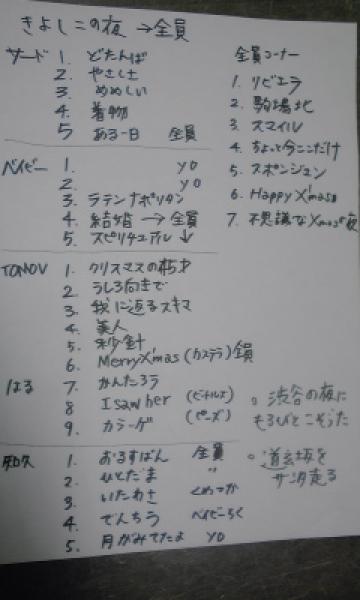 きよしこの夜 → 全員
サード 1. どたんば
2. やさしさ
3. めめしい
4. 着物
5 ある一日 全員
ベイビー 1. yo
2. yo
3. ラテンナポリタン
4 結婚 → 全員
5. スピリチュアル ↓
TOMOV 1. クリスマスの
2. うしろ向きで
3. 我に返るスキマ
4. 美人
5. 秒針
6. Merry X'mas (カステラ) 全員
はる 7. かんたろう
8 I saw her (ビートルズ)
9. カラーゲ (ピーズ)
知久 1. おるすばん 全員
2. ひとだま 〃
3. いたわさ
4. でんちう ベイビーちく
5. 月がみてたよ yo
全員コーナー
1. リビエラ
2. 駒場北
3. スマイル
4. ちょっと今ここだけ
5. スポンジマン
6. Happy X'mas
7. 不思議なX'mas夜
。渋谷の夜に
もろびとこぞうた
。道玄坂を
サンタ走る